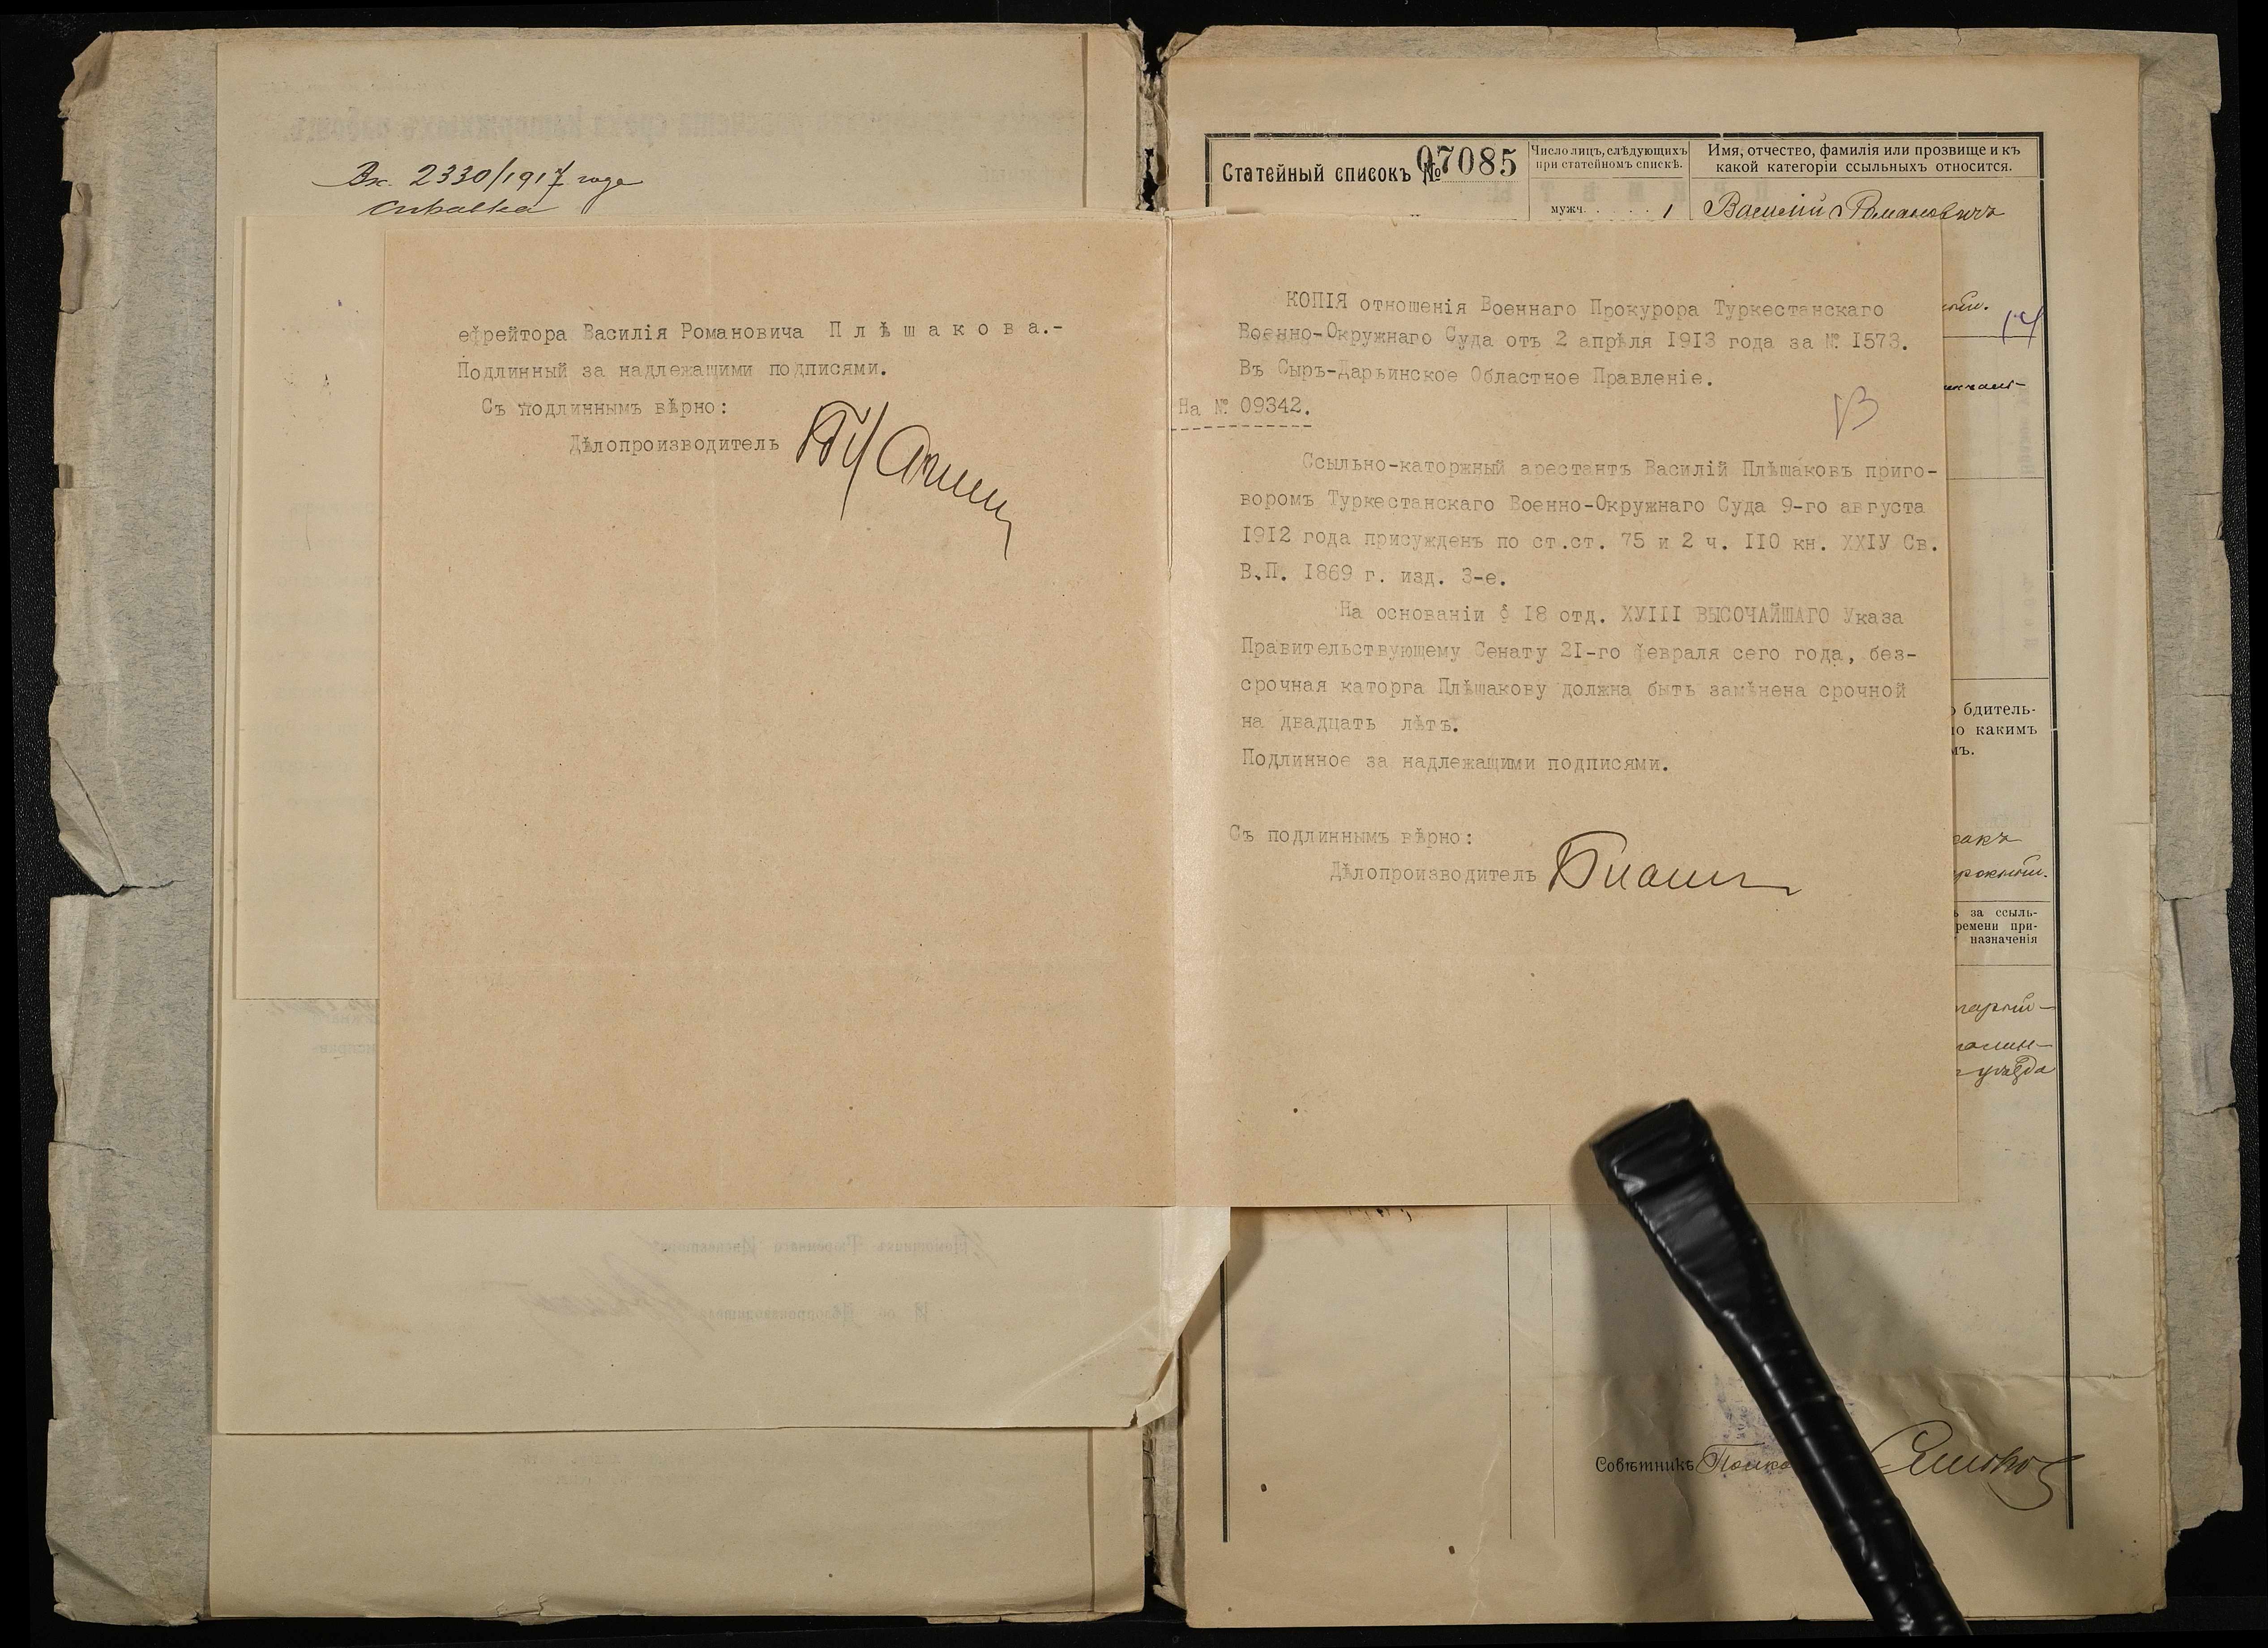 Вх. 2330/1917 года
ефрейтора Василія Романовича П л ѣ ш а к о в а.-
Подлинный за надлежащими подписями.
Съ подлиннымъ вѣрно:
Дѣлопроизводитель
Статейный списокъ № 07085
Число лицъ, слѣдующихъ
при статейномъ спискѣ.
мужч. . . . . . 1
Имя, отчество, фамилія или прозвище и къ
какой категоріи ссыльныхъ относится.
Василій Романовичъ
КОПІЯ отношенія Военнаго Прокурора Туркестанскаго
Военно-Окружнаго Суда отъ 2 апрѣля 1913 года за № 1573.
Въ Сыръ-Дарьинское Областное Правленіе.
На № 09342.
13
14
Ссыльно-каторжный арестантъ Василій Плѣшаковъ приго-
воромъ Туркестанскаго Военно-Окружнаго Суда 9-го августа
1912 года присужденъ по ст.ст. 75 и 2 ч. 110 кн. XXIУ Св.
В.П. 1869 г. изд. 3-е.
На основаніи § 18 отд. ХУIII ВЫСОЧАЙШАГО Указа
Правительствующему Сенату 21-го февраля сего года, без-
срочная каторга Плѣшакову должна быть замѣнена срочной
на двадцать лѣтъ.
Подлинное за надлежащими подписями.
Съ подлиннымъ вѣрно:
Дѣлопроизводитель
бдитель-
какимъ
за ссыль-
ремени при-
назначенія
уѣзда
Совѣтникъ